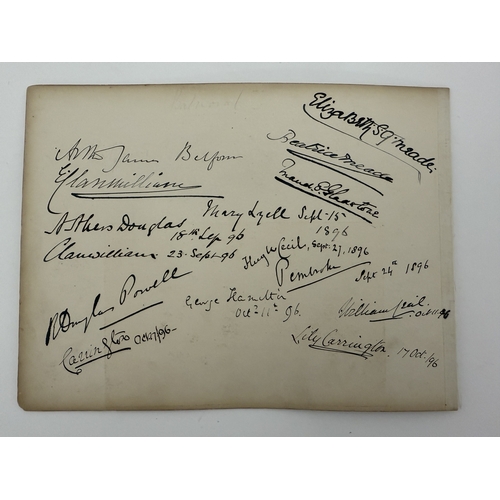 Elizabeth S G. Meade.
Beatrice Meade
Maud E. Gladstone
James
Clanwilliam
Mary Lyell Sept-15
1896
Douglas
18th Sep 96
Clanwilliam 23-Sept-96
Hugh Cecil, Sept. 27, 1896
Pembroke Sept 24th 1896
R Douglas Powell
George Hamilton
Octr 11th 96.
William Cecil.
Carrington Oct 17/96-
Lily Carrington. 17 Oct. /96